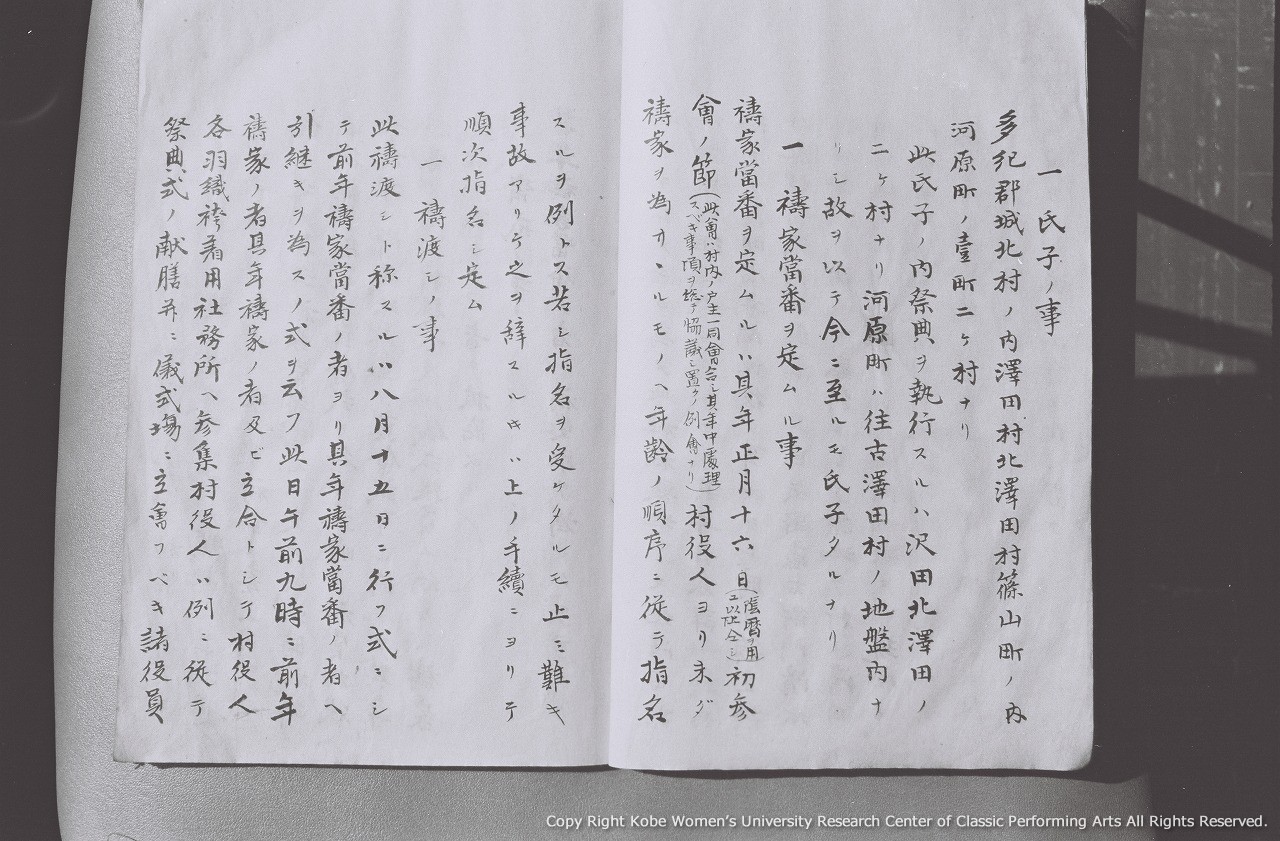 一 氏子ノ事
多紀郡城北村ノ内澤田村北澤田村篠山町ノ内
河原町ノ壹町二ヶ村ナリ
此氏子ノ内祭典ヲ執行スルハ沢田北澤田ノ
二ヶ村ナリ河原町ハ往古澤田村ノ地盤内ナ
リシ故ヲ以テ今ニ至ルモ氏子タルナリ
一 禱家當番ヲ定ムル事
禱家當番ヲ定ムルハ其年正月十六日(陰暦ヲ用ユ以仝シ)初参
會ノ節(此會ハ村内ノ戸主一同會合シ其年中處理スベキ事項ヲ協議シ置ク例會ナリ)村役人ヨリ未ダ
禱家ヲ為サヽルモノヘ年齢ノ順序ニ従テ指名
スルヲ例トス若シ指名ヲ受ケタルモ止ミ難キ
事故アリテ之ヲ辞スルキハ上ノ手續ニヨリテ
順次指名シ定ム
一 禱渡シノ事
此禱渡シト称スルハ八月十五日ニ行フ式ニシ
テ前年禱家當番ノ者ヨリ其年禱家當番ノ者ヘ
引継キヲ為スノ式ヲ云フ此日午前九時ニ前年
禱家ノ者其年禱家ノ者及ビ立合トシテ村役人
各羽織袴着用社務所ヘ参集村役人ハ例ニ従テ
祭典式ノ献膳并ニ儀式場ニ立會フベキ諸役員
Copy Right Kobe Women's University Research Center of Classic Performing Arts All Rights Reserved.